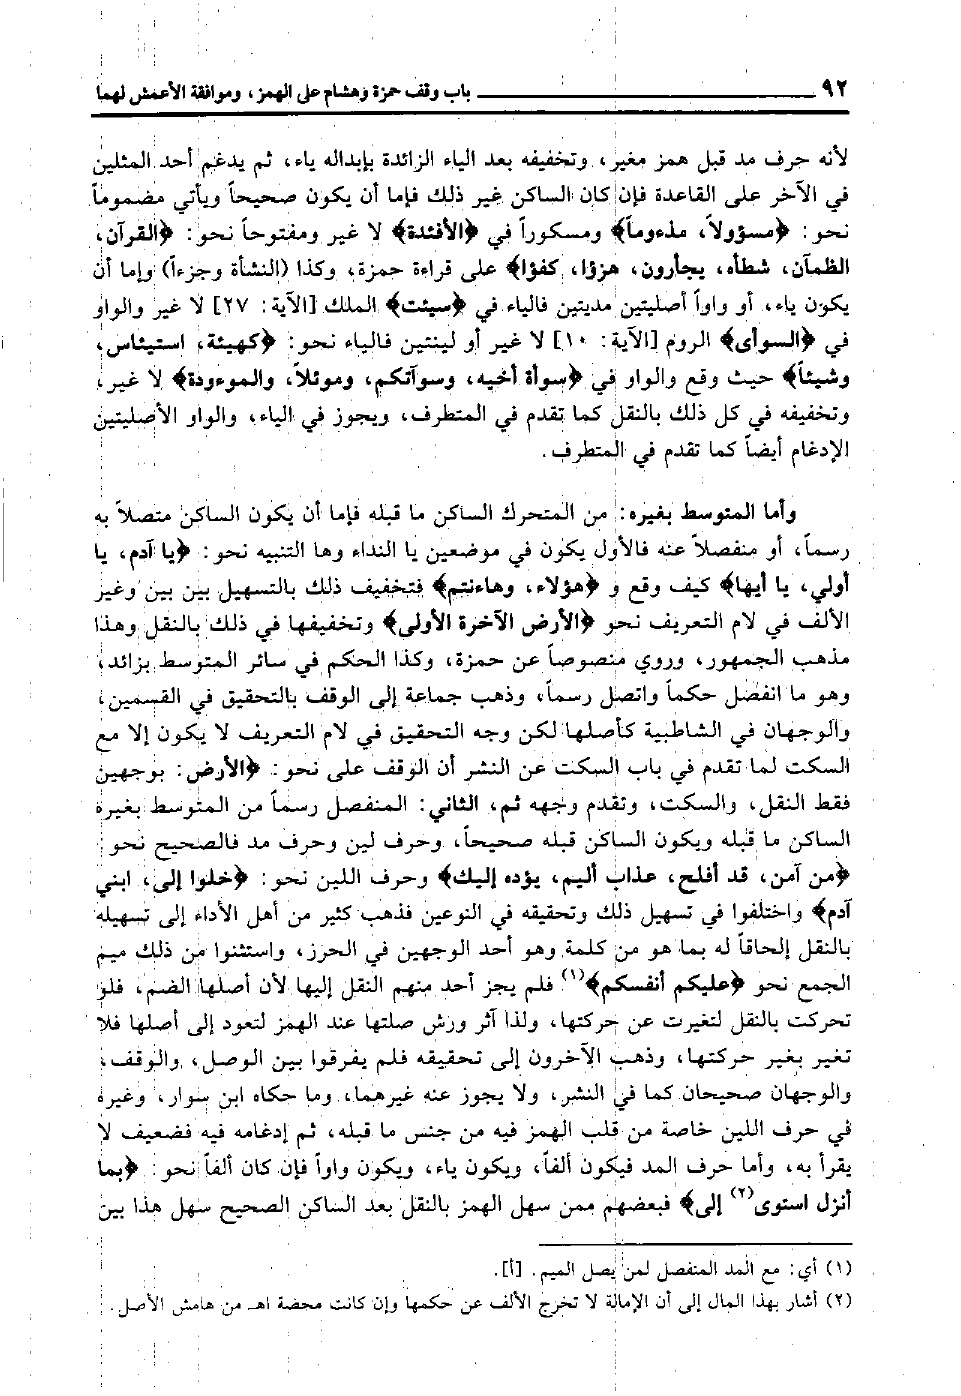 ٩٢ باب وقف حمزة وهشام على الهمز، وموافقة الأعمش لهما
لأنه حرف مد قبل همز مغير، وتخفيفه بعد الياء الزائدة بإبداله ياء، ثم يدغم أحد المثلين
في الآخر على القاعدة فإن كان الساكن غير ذلك فإما أن يكون صحيحاً ويأتي مضموماً
نحو: ﴿مسؤولاً، مذءوماً﴾ ومسكوراً في ﴿الأفئدة﴾ لا غير ومفتوحاً نحو: ﴿القرآن،
الظمآن، شطأه، يجأرون، هزؤا، كفؤا﴾ على قراءة حمزة، وكذا (النشأة وجزءاً) وإما أن
يكون ياء، أو واواً أصليتين مديتين فالياء في ﴿سيئت﴾ الملك [الآية: ٢٧] لا غير والواو
في ﴿السوأى﴾ الروم [الآية: ١٠] لا غير أو لينتين فالياء نحو: ﴿كهيئة، استيئاس،
وشيئاً﴾ حيث وقع والواو في ﴿سوأة أخيه، وسوآتكم، وموئلاً، والموءودة﴾ لا غير،
وتخفيفه في كل ذلك بالنقل كما تقدم في المتطرف، ويجوز في الياء، والواو الأصليتين
الإدغام أيضاً كما تقدم في المتطرف.
وأما المتوسط بغيره: من المتحرك الساكن ما قبله فإما أن يكون الساكن متصلاً به
رسماً، أو منفصلاً عنه فالأول يكون في موضعين يا النداء وها التنبيه نحو: ﴿يا آدم، يا
أولي، يا أيها﴾ كيف وقع و ﴿هؤلاء، وهاءنتم﴾ فتخفيف ذلك بالتسهيل بين بين وغير
الألف في لام التعريف نحو ﴿الأرض الآخرة الأولى﴾ وتخفيفها في ذلك بالنقل وهذا
مذهب الجمهور، وروي منصوصاً عن حمزة، وكذا الحكم في سائر المتوسط بزائد،
وهو ما انفصل حكماً واتصل رسماً، وذهب جماعة إلى الوقف بالتحقيق في القسمين،
والوجهان في الشاطبية كأصلها لكن وجه التحقيق في لام التعريف لا يكون إلا مع
السكت لما تقدم في باب السكت عن النشر أن الوقف على نحو: ﴿الأرض: بوجهين
فقط النقل، والسكت، وتقدم وجهه ثم، الثاني: المنفصل رسماً من المتوسط بغيره
الساكن ما قبله ويكون الساكن قبله صحيحاً، وحرف لين وحرف مد فالصحيح نحو:
﴿من آمن، قد أفلح، عذاب أليم، يؤده إليك﴾ وحرف اللين نحو: ﴿خلوا إلى، ابني
آدم﴾ واختلفوا في تسهيل ذلك وتحقيقه في النوعين فذهب كثير من أهل الأداء إلى تسهيله
بالنقل إلحاقاً له بما هو من كلمة وهو أحد الوجهين في الحرز، واستثنوا من ذلك ميم
الجمع نحو ﴿عليكم أنفسكم﴾(١) فلم يجز أحد منهم النقل إليها لأن أصلها الضم، فلو
تحركت بالنقل لتغيرت عن حركتها، ولذا آثر ورش صلتها عند الهمز لتعود إلى أصلها فلا
تغير بغير حركتها، وذهب الآخرون إلى تحقيقه فلم يفرقوا بين الوصل، والوقف،
والوجهان صحيحان كما في النشر، ولا يجوز عنه غيرهما، وما حكاه ابن سوار، وغيره
في حرف اللين خاصة من قلب الهمز فيه من جنس ما قبله، ثم إدغامه فيه فضعيف لا
يقرأ به، وأما حرف المد فيكون ألفاً، ويكون ياء، ويكون واواً فإن كان ألفاً نحو: ﴿بما
أنزل استوى(٢) إلى﴾ فبعضهم ممن سهل الهمز بالنقل بعد الساكن الصحيح سهل هذا بين
(١) أي: مع المد المنفصل لمن يصل الميم. [أ].
(٢) أشار بهذا المال إلى أن الإمالة لا تخرج الألف عن حكمها وإن كانت محضة اهـ من هامش الأصل.